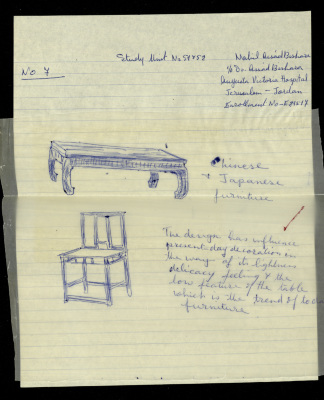 No. 7
Study Unit No 5Y52
Nabil Assad Bishara
c/o Dr. Assad Bishara
Augusta Victoria Hospital
Jerusalem - Jordan
Enrollment No -
Chinese
+ Japanese
furniture
The design has influence
present day decoration in
the way of its lightness
delicacy feeling & the
low feature of the table
which is the trend of to day
furniture